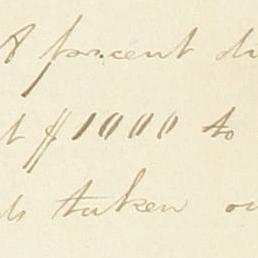 A forcent di
t $1000 to
ds taken ou